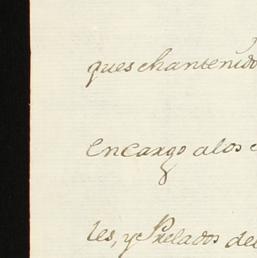 ques ehan tenido
encargo a los
tes, y Prelados de